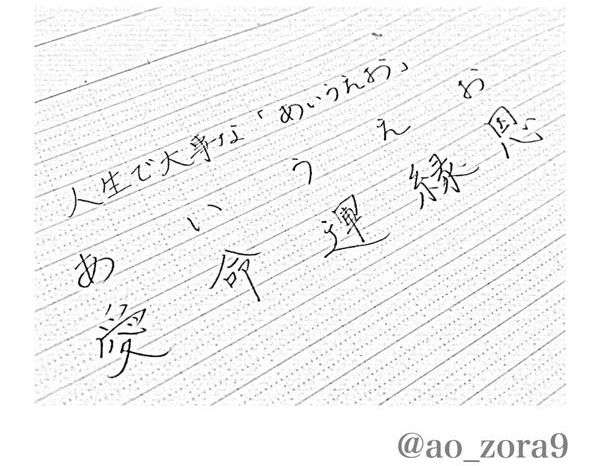 人生で大事な「あいうえお」
あ い う え お
愛 命 運 縁 恩
@ao_zora9